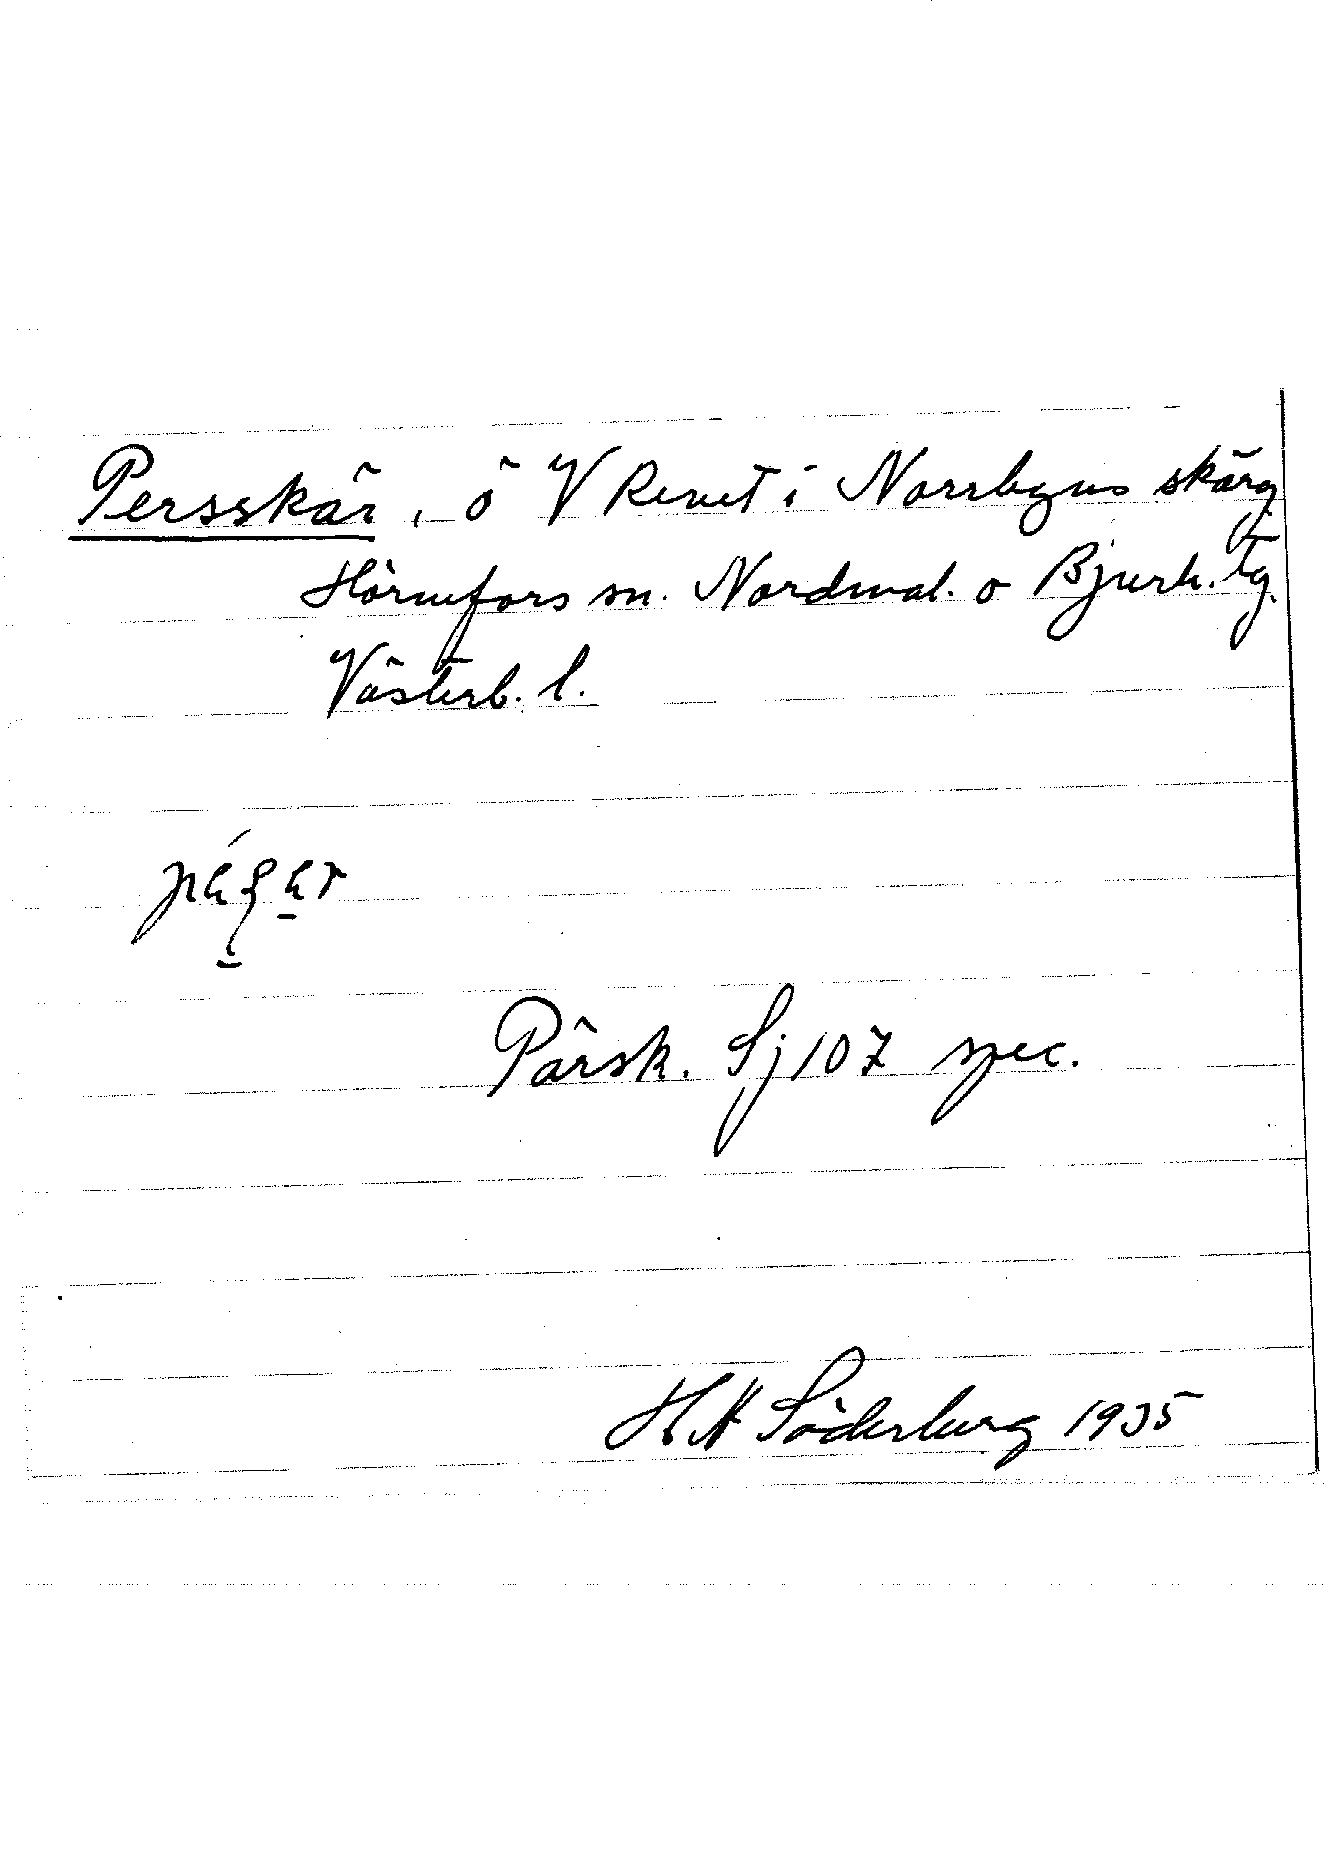 Persskär, ö V Revet i Norrbyns skärg.
Hörnefors sn. Nordmal. o Bjurh. tg.
Västerb. l.
Pärsk. Sj 107 spec.
H H Söderberg 1935